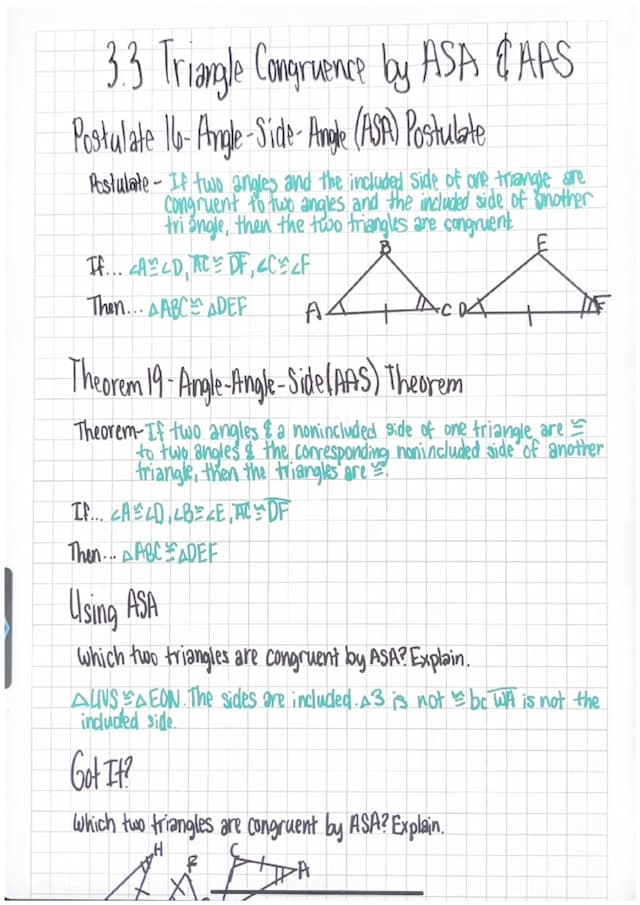 3.3 Triangle Congruence by ASA & AAS
Postulate 16- Angle-Side-Angle (ASA) Postulate
Postulate - If two angles and the included side of one triangle are
congruent to two angles and the included side of another
triangle, then the two triangles are congruent.
If... ∠A≅∠D, AC ≅ DF, ∠C≅∠F
Then... △ABC≅△DEF
B
A
C
E
D
F
Theorem 19-Angle-Angle-Side(AAS) Theorem
Theorem-If two angles & a nonincluded side of one triangle are ≅
to two angles & the corresponding nonincluded side of another
triangle, then the triangles are ≅.
If... ∠A≅∠D, ∠B≅∠E, AC≅DF
Then... △ABC≅△DEF
Using ASA
Which two triangles are congruent by ASA? Explain.
△UNS≅△EON. The sides are included. △3 is not ≅ bc WA is not the
included side.
Got It?
Which two triangles are congruent by ASA? Explain.
H
F
C
A